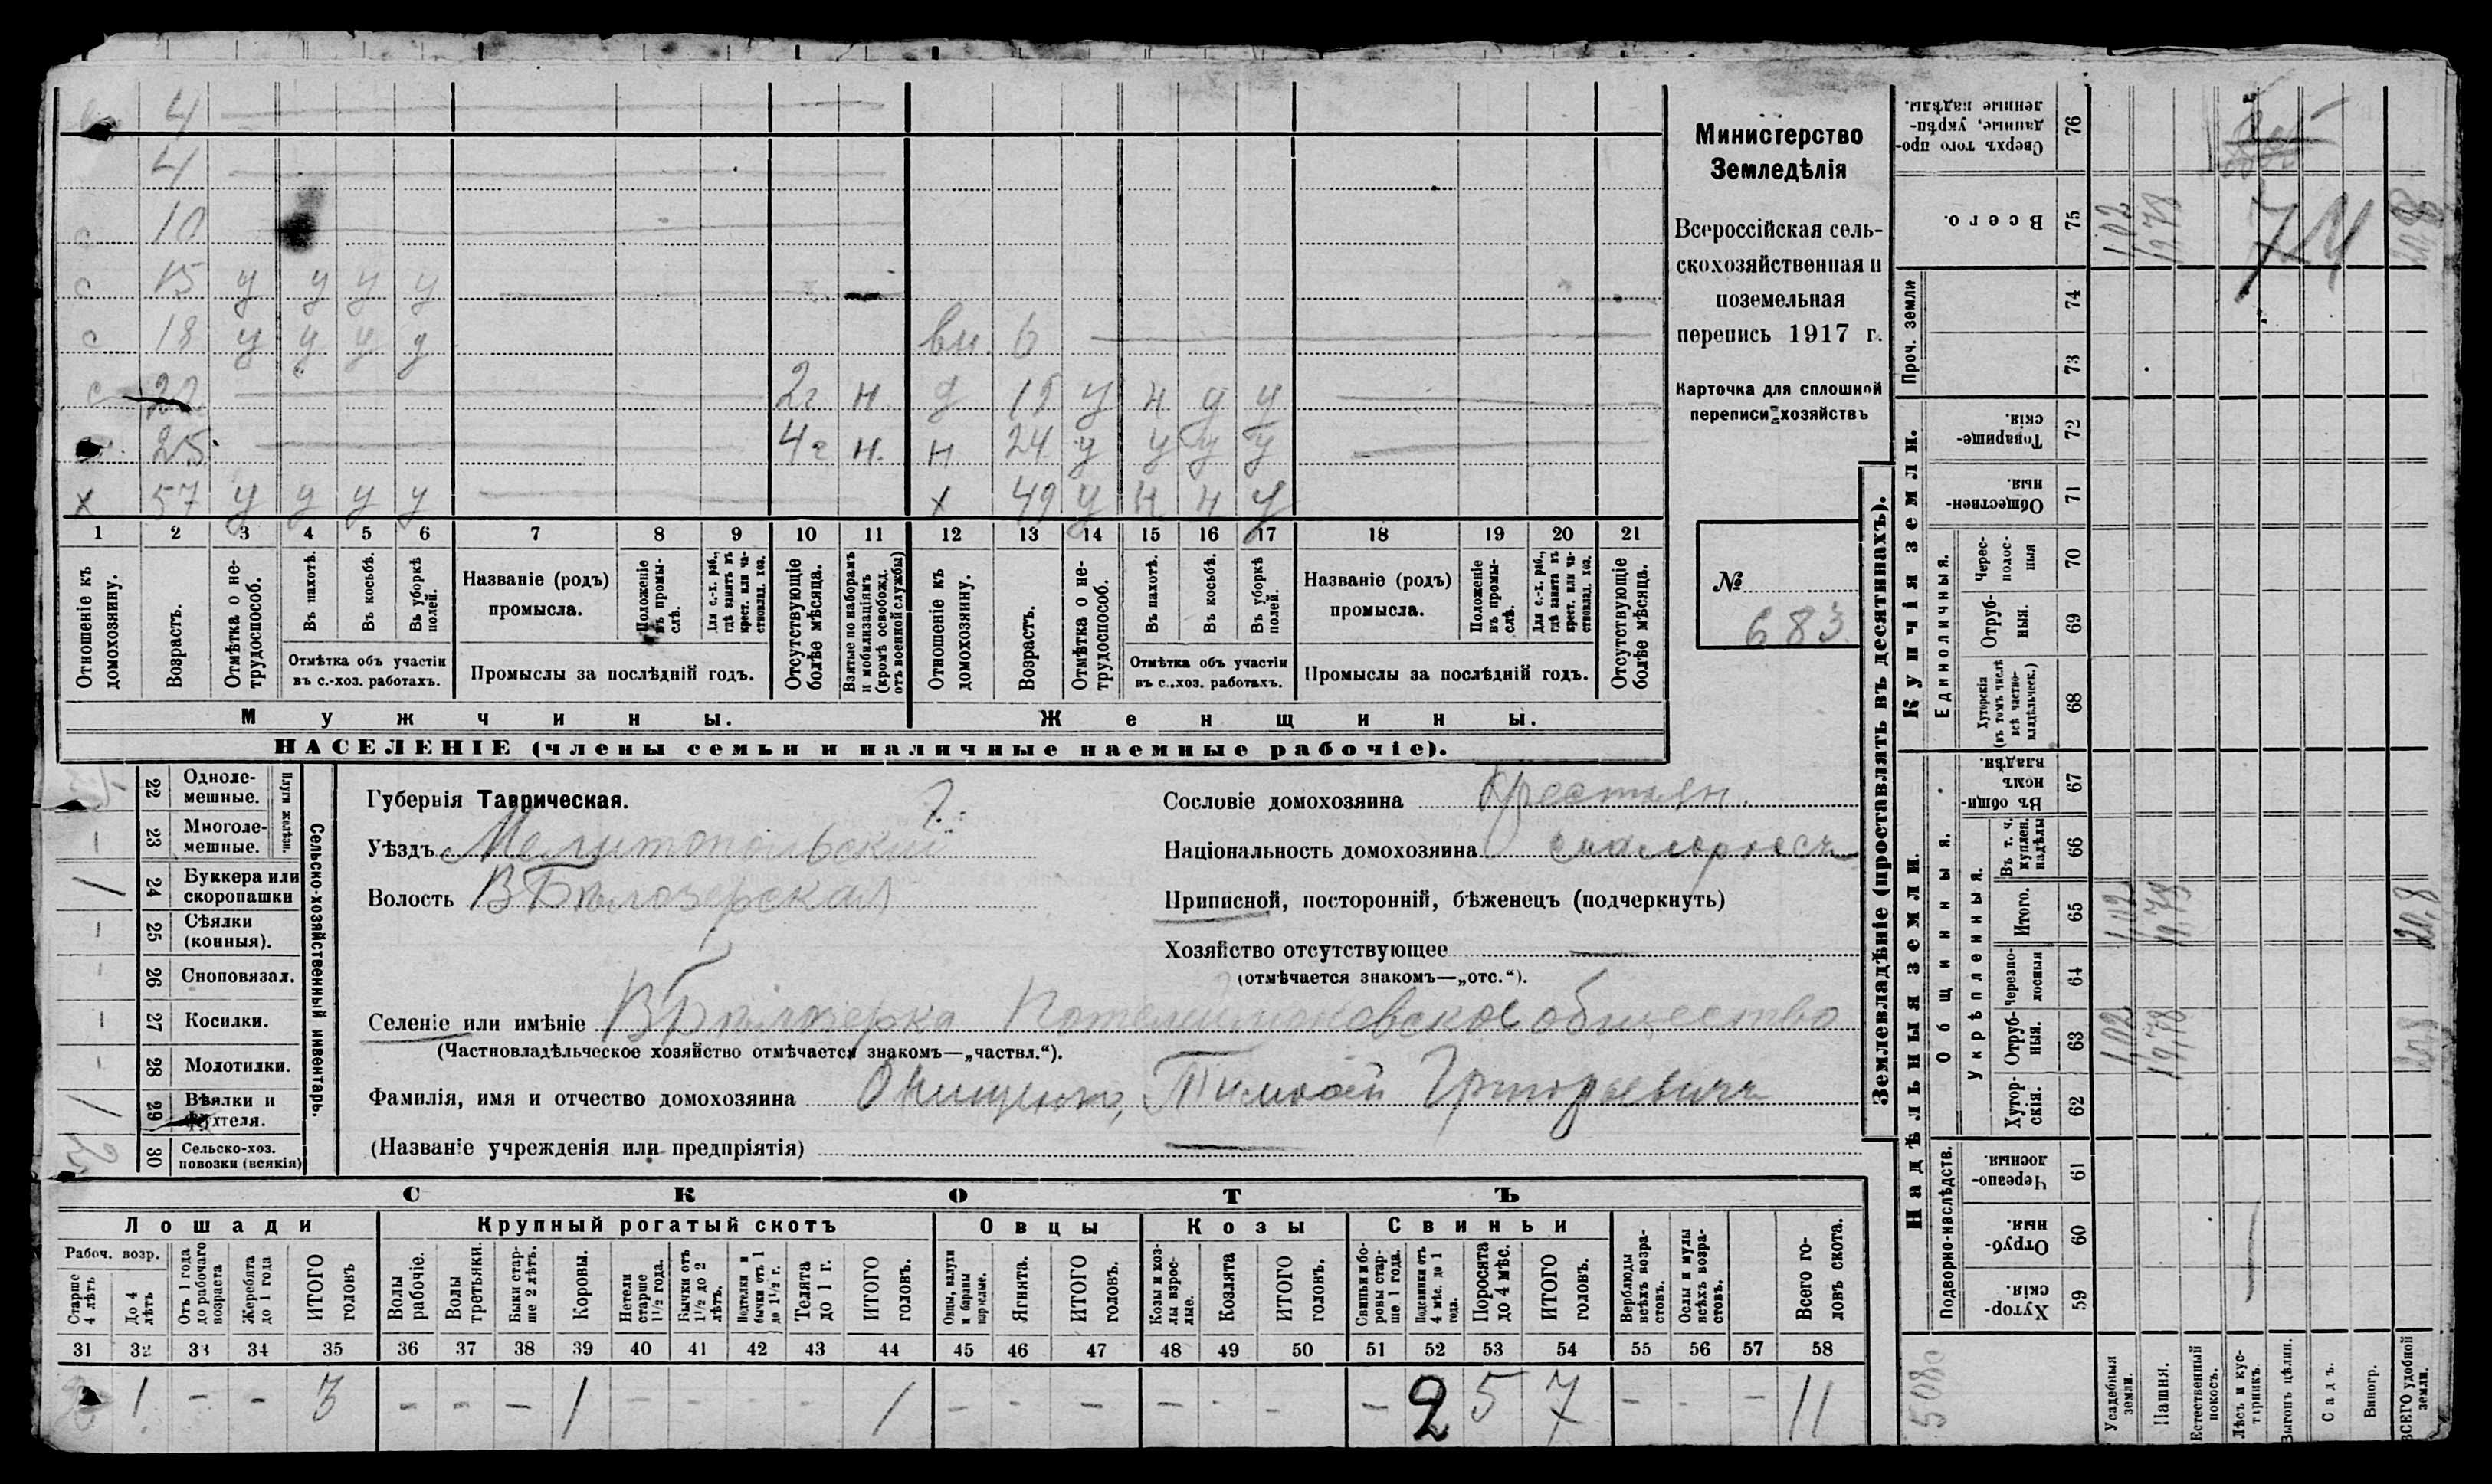 4
4
с 10
с 15 у у у у
с 18 у у у у вн. 6
с 22 2г н д 15 у н у у
25 4г н. н 24 у у у у
х 57 у у у у х 49 у н н у
1 2 3 4 5 6 7 8 9 10 11 12 13 14 15 16 17 18 19 20 21
Отношеніе къ домохозяину.
Возрастъ.
Отмѣтка о не-трудоспособ.
Въ пахотѣ.
Въ косьбѣ.
Въ уборкѣ полей.
Отмѣтка объ участіи
въ с.-хоз. работахъ.
Названіе (родъ)
промысла.
Положеніе въ промы-слѣ.
Для с.-х. раб., гдѣ занятъ въ крест. или ча-стновлад. хоз.
Промыслы за послѣдній годъ.
Отсутствующіе болѣе мѣсяца.
Взятые по наборамъ и мобилизаціямъ (кромѣ освобожд. отъ военной службы)
Отношеніе къ домохозяину.
Возрастъ.
Отмѣтка о не-трудоспособ.
Въ пахотѣ.
Въ косьбѣ.
Въ уборкѣ полей.
Отмѣтка объ участіи
въ с.-хоз. работахъ.
Названіе (родъ)
промысла.
Положеніе въ промы-слѣ.
Для с.-х. раб., гдѣ занята въ крест. или ча-стновлад. хоз.
Промыслы за послѣдній годъ.
Отсутствующіе болѣе мѣсяца.
Мужчины. Женщины.
НАСЕЛЕНІЕ (члены семьи и наличные наемные рабочіе).
Министерство
Земледѣлія
Всероссійская сель-
скохозяйственная и
поземельная
перепись 1917 г.
Карточка для сплошной
переписи хозяйствъ
№
683
Сельско-хозяйственный инвентарь.
Плуги желѣзн.
22 Одноле-
мешные.
– 23 Многоле-
мешные.
/ 24 Буккера или
скоропашки
– 25 Сѣялки
(конныя).
– 26 Сноповязал.
– 27 Косилки.
– 28 Молотилки.
/ 29 Вѣялки и
фухтеля.
2 30 Сельско-хоз.
повозки (всякія)
Губернія Таврическая. 7.
Уѣздъ Мелитопольскій
Волость ВБѣлозерская
Сословіе домохозяина крестьян.
Національность домохозяина малороссъ
Приписной, посторонній, бѣженецъ (подчеркнуть)
Хозяйство отсутствующее —
(отмѣчается знакомъ—„отс.“).
Селеніе или имѣніе ВБѣлозерка общество
(Частновладѣльческое хозяйство отмѣчается знакомъ—„частвл.“).
Фамилія, имя и отчество домохозяина Онищенко, Тимофѣй Григорьевичъ
(Названіе учрежденія или предпріятія) —
СКОТЪ
Лошади Крупный рогатый скотъ Овцы Козы Свиньи
Рабоч. возр.
Старше 4 лѣтъ
До 4 лѣтъ
Отъ 1 года до рабочаго возраста
Жеребята до 1 года
ИТОГО головъ
Волы рабочіе.
Волы третьячки.
Быки стар-ше 2 лѣтъ.
Коровы.
Нетели старше 1½ года.
Бычки отъ 1½ до 2 лѣтъ.
Подтелки и бычки отъ 1 до 1½ г.
Телята до 1 г.
ИТОГО головъ.
Овцы, валухи и бараны взрослые.
Ягнята.
ИТОГО головъ.
Козы и коз-лы взрос-лые.
Козлята
ИТОГО головъ.
Свиньи и бо-ровы стар-ше 1 года.
Подсвинки отъ 4 мѣс. до 1 года.
Поросята до 4 мѣс.
ИТОГО головъ.
Верблюды всѣхъ возра-стовъ.
Ослы и мулы всѣхъ возра-стовъ.
Всего го-ловъ скота.
31 32 33 34 35 36 37 38 39 40 41 42 43 44 45 46 47 48 49 50 51 52 53 54 55 56 57 58
1 – – 3 – – – 1 – – – – 1 – – – – – – – 2 5 7 – – – 11
Землевладѣніе (проставлять въ десятинахъ).
Купчія земли.
Надѣльныя земли.
Сверхъ того про-данные, укрѣп-ленные надѣлы. 76
Всего. 75 1,02 19,78 20,8
74
Проч. земли
73
Товарище-скія. 72
Обществен-ныя. 71
Единоличныя.
Черес-полос-ныя 70
Отруб-ныя. 69
Хуторскія (въ томъ числѣ всѣ частно-владѣльческ.) 68
Общинныя.
Въ общин-номъ владѣн. 67
Укрѣпленныя.
Въ т. ч. куплен. надѣлы 66
Итого. 65 1,02 19,78 20,8
Черезпо-лосныя 64
Отруб-ныя. 63 1,02 19,78 20,8
Хутор-скія. 62
Подворно-наслѣдств.
Черезпо-лосныя. 61
Отруб-ныя. 60
Хутор-скія. 59
5080
Усадебныя земли.
Пашня.
Естественный покосъ.
Лѣсъ и кус-тарникъ.
Выгонъ цѣлин.
Садъ.
Виногр.
ВСЕГО удобной земли.